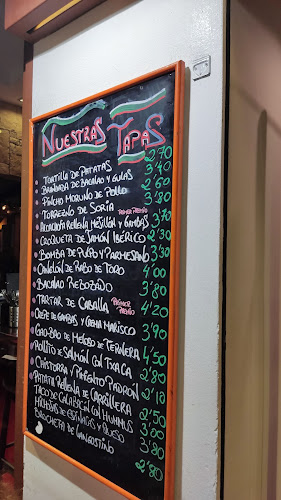 NUESTRAS TAPAS
• TORTILLA DE PATATAS 2'70
• BRANDADA DE BACALAO Y GULAS 3'40
• PINCHO MORUNO DE POLLO 2'60
• TORREZNO DE SORIA 3'80
• ALCACHOFA RELLENA MEJILLÓN Y GAMBAS PRIMER PREMIO 3'70
• CROQUETA DE JAMÓN IBÉRICO 2'30
• BOMBA DE PULPO Y PARMESANO 3'30
• CANELÓN DE RABO DE TORO 4'00
• BACALAO REBOZADO 3'80
• TARTAR DE CABALLA PRIMER PREMIO 4'20
• CREPE DE GAMBAS Y CREMA MARISCO 3'90
• GAO-BAO DE MELOSO DE TERNERA 4'50
• ROLLITO DE SALMÓN CON TXACA 2'80
• CHISTORRA Y PIMIENTO PADRÓN 2'10
• PATATA RELLENA DE CARRILLERA 2'50
• TACO DE CALABACÍN CON HUMMUS 3'00
• DE ESPINACAS Y QUESO 3'80
• BROCHETA DE LANGOSTINO 2'80